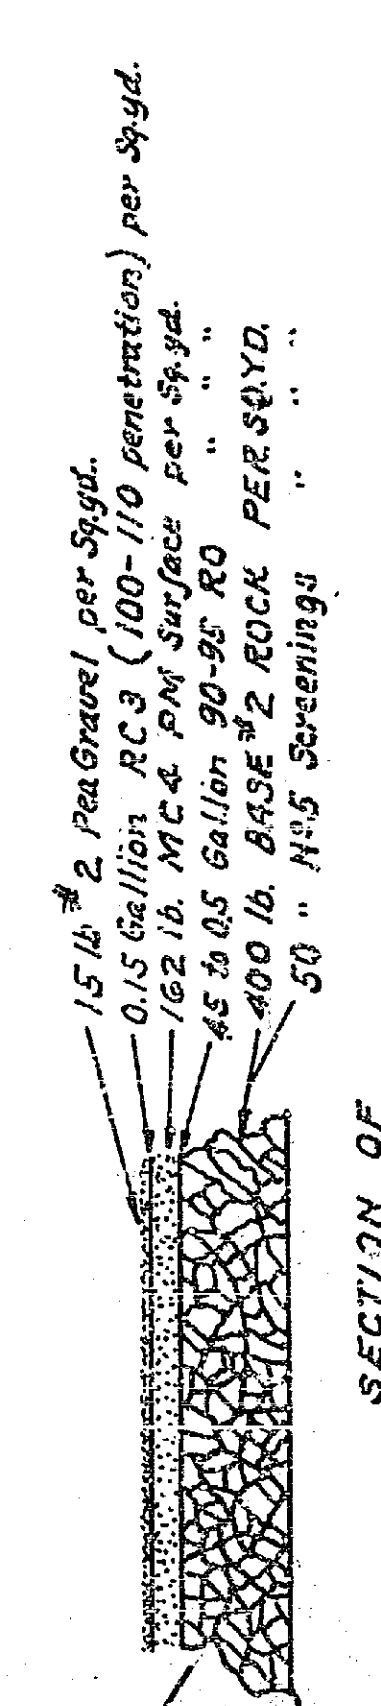 15 lb #2 Pea Gravel per Sq.yd.
0.15 Gallion RC3 (100-110 penetration) per Sq.yd.
162 lb. MC4 PM Surface per Sq.yd.
.45 to 0.5 Gallion 90-95 RO " " "
400 lb. BASE #2 ROCK PER SQ.YD.
50 " Nº5 Screenings " " "
SECTION OF